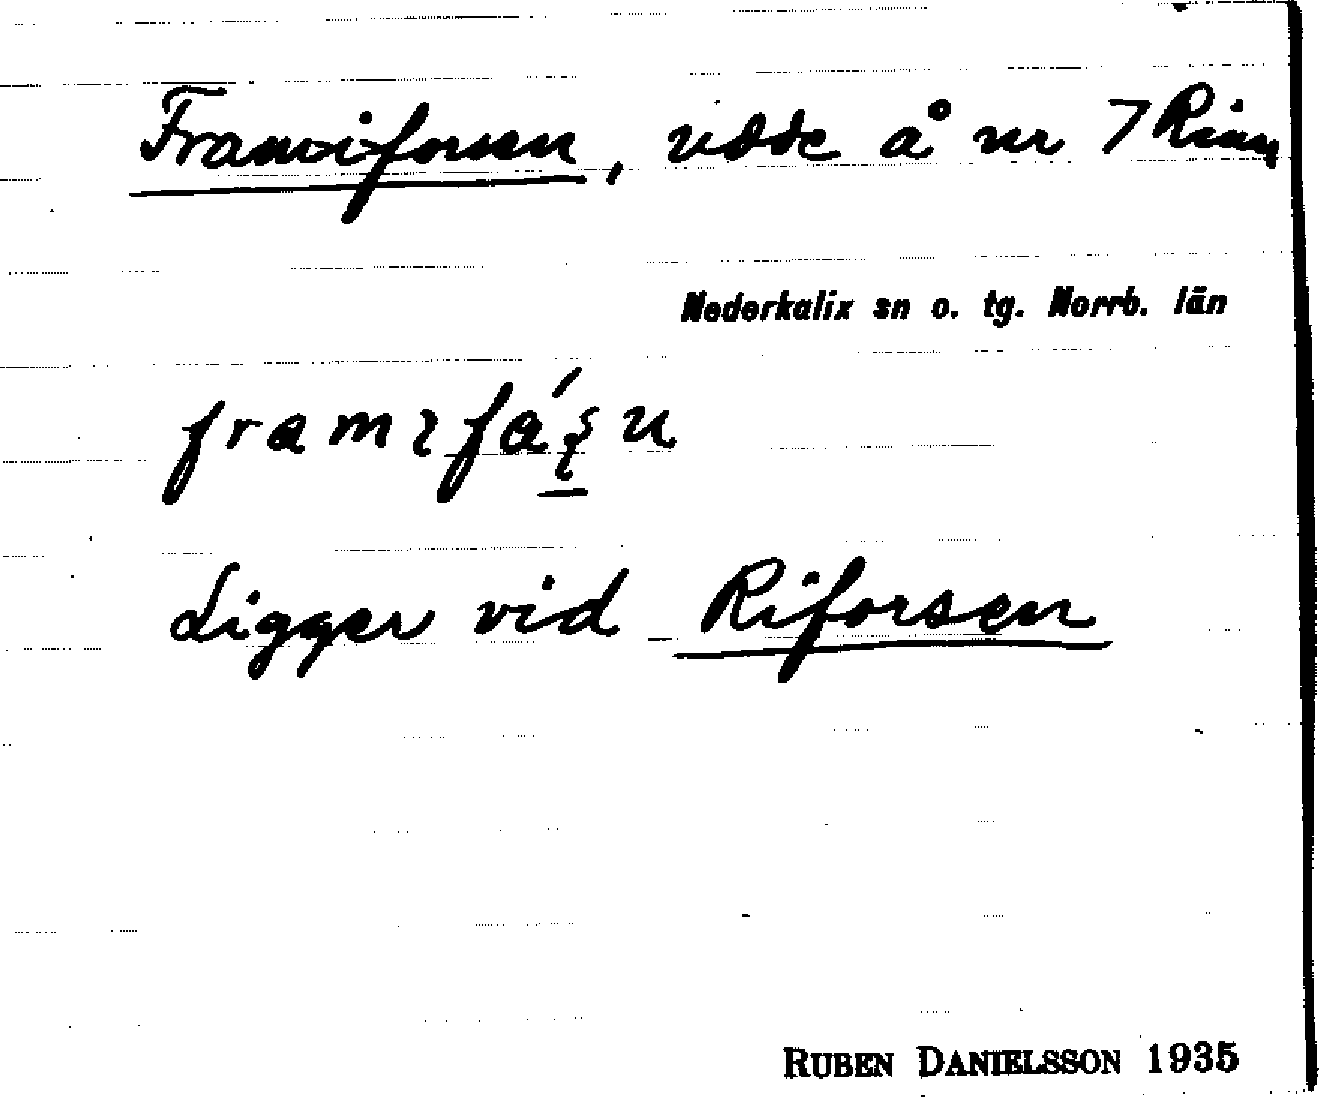 Framiforsen, udde å nr 7 Rian
Nederkalix sn o. tg. Norrb. län
Ligger vid Riforsen
RUBEN DANIELSSON 1935